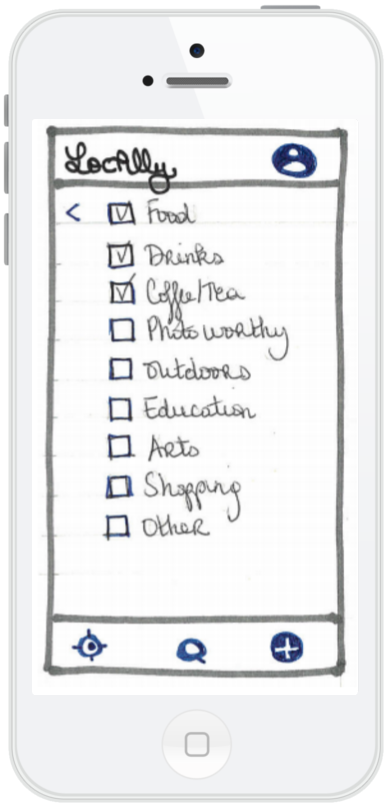 Locally
< Food
Drinks
Coffee/Tea
Photo worthy
Outdoors
Education
Arts
Shopping
Other